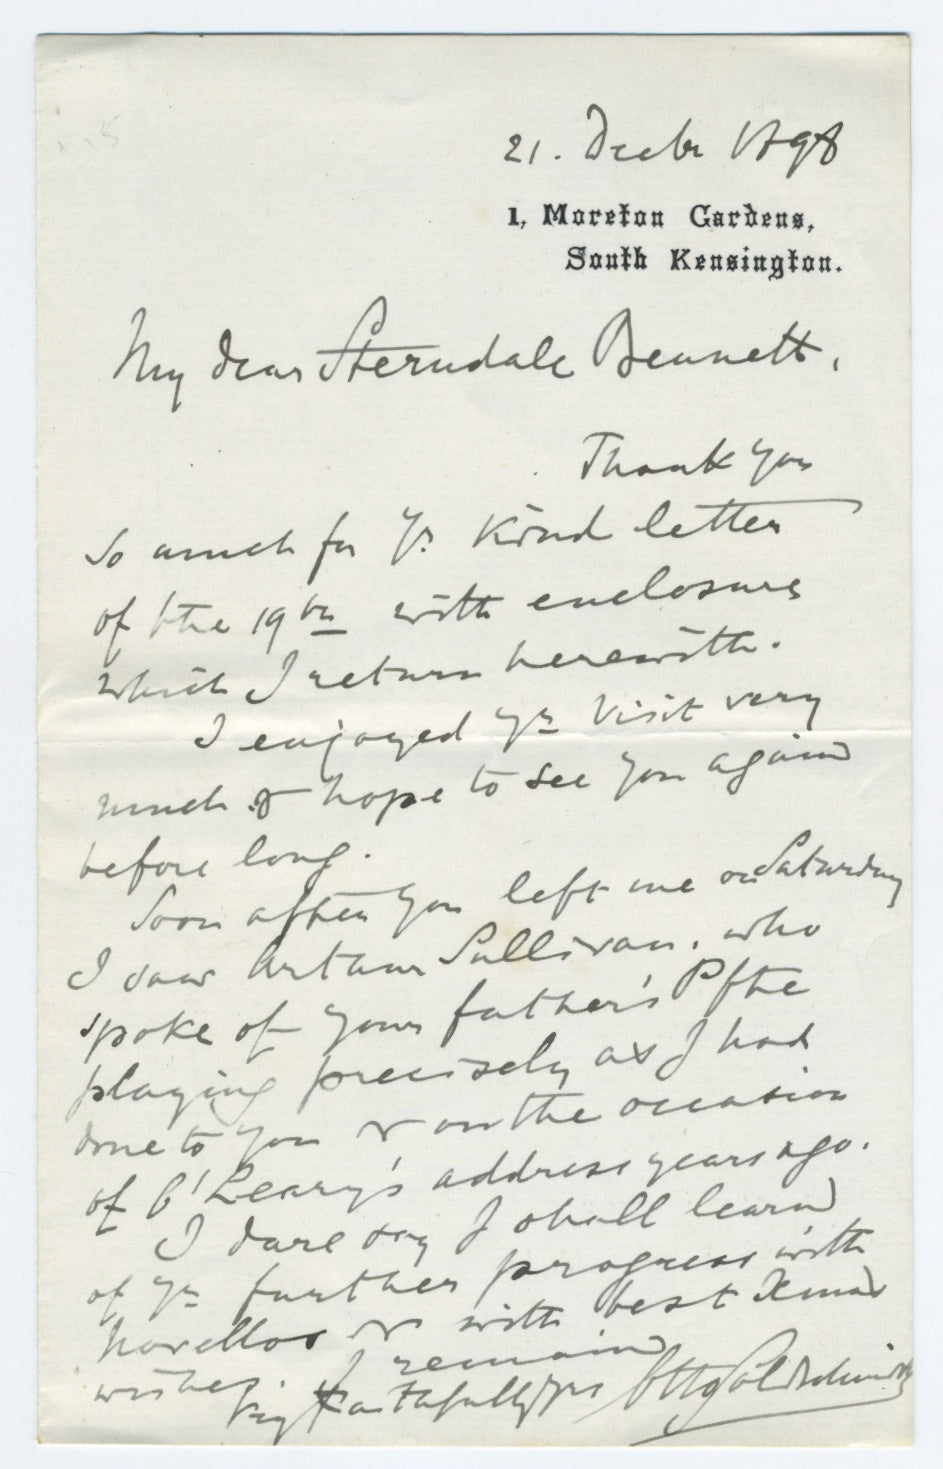 21. Decbr 1898
1, Moreton Gardens,
South Kensington.
My dear Sterndale Bennett,
Thank you
so much for yr. kind letter
of the 19th with enclosure
which I return herewith.
I enjoyed yr visit very
much & hope to see you again
before long.
Soon after you left me on Saturday
I saw Arthur Sullivan, who
spoke of your father's Pfte
playing precisely as I had
done to you & on the occasion
of O'Leary's address years ago.
I dare say I shall learn
of yr further progress with
Novellos & with best Xmas
wishes, I remain
faithfully yrs Otto Goldschmidt